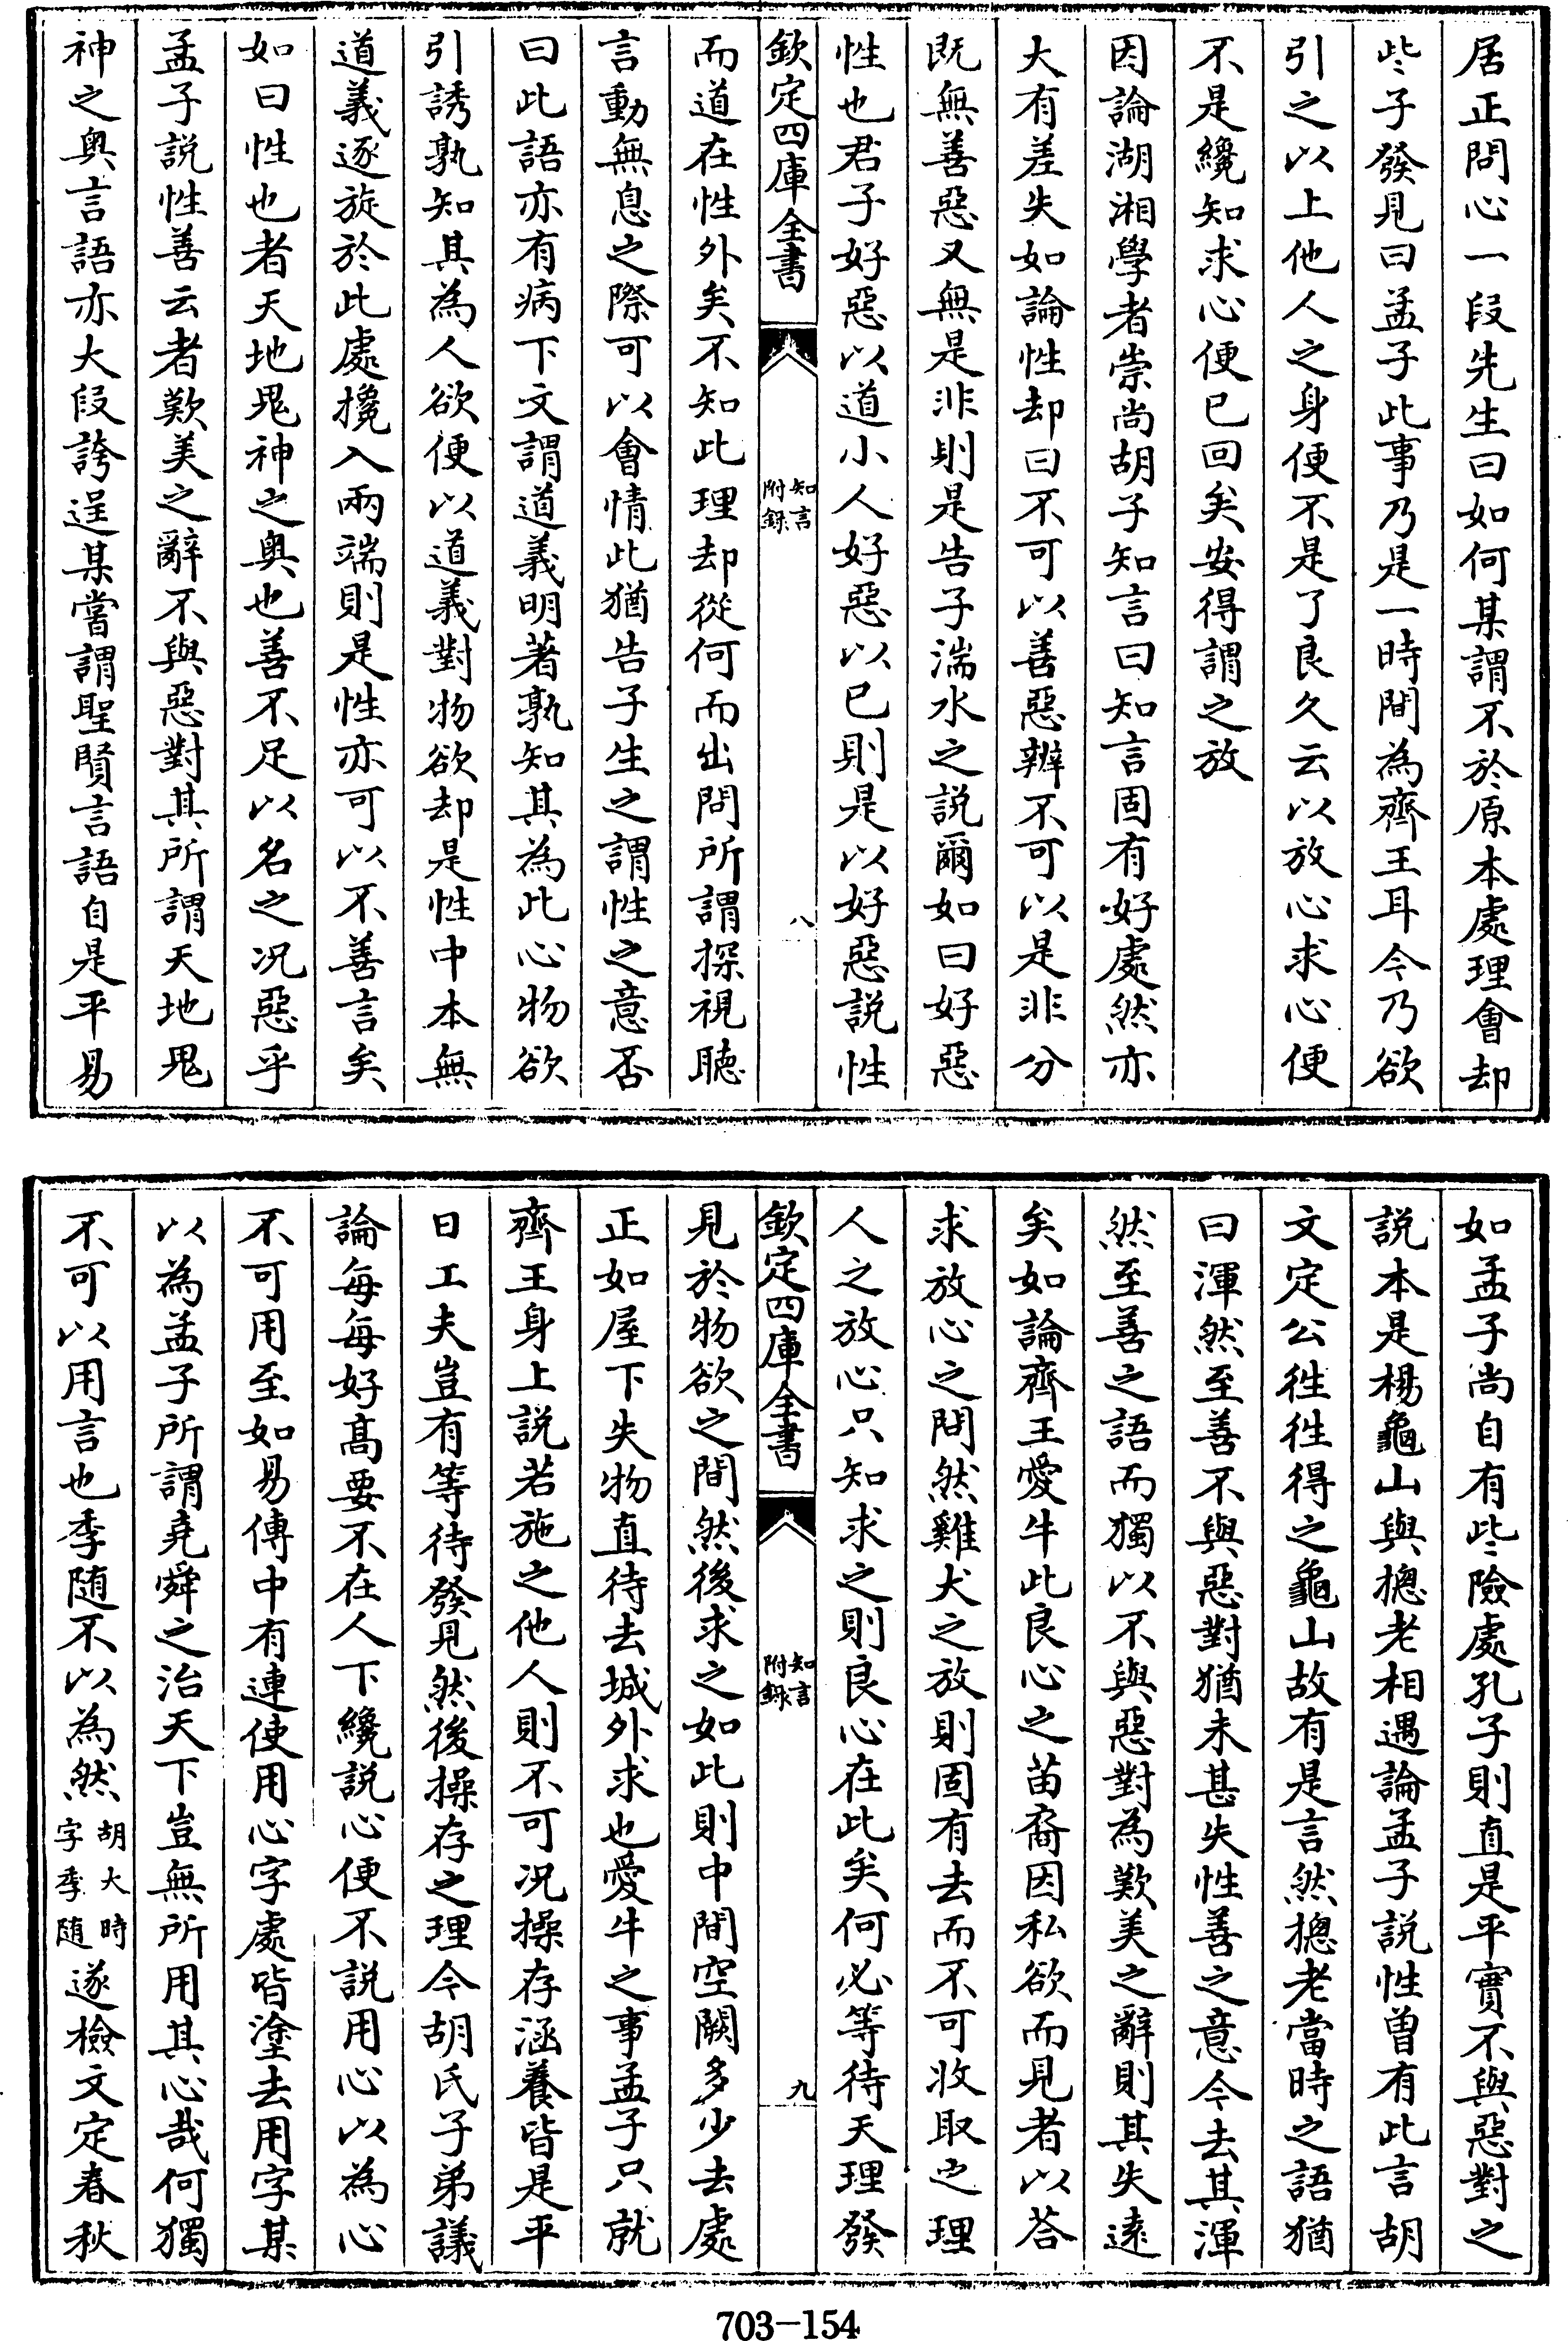 居正問心一段先生曰如何某謂不於原本處理會却
些子發見曰孟子此事乃是一時間為齊王耳今乃欲
引之以上他人之身便不是了良久云以放心求心便
不是纔知求心便已回矣安得謂之放
因論湖湘學者崇尚胡子知言曰知言固有好處然亦
大有差失如論性却曰不可以善惡辨不可以是非分
既無善惡又無是非則是告子湍水之說爾如曰好惡
性也君子好惡以道小人好惡以已則是以好惡說性
欽定四庫全書
知言
附錄
八
而道在性外矣不知此理却從何而出問所謂探視聽
言動無息之際可以會情此猶告子生之謂性之意否
曰此語亦有病下文謂道義明著孰知其為此心物欲
引誘孰知其為人欲便以道義對物欲却是性中本無
道義逐旋於此處攙入兩端則是性亦可以不善言矣
如曰性也者天地鬼神之奥也善不足以名之况惡乎
孟子說性善云者歎美之辭不與惡對其所謂天地鬼
神之奥言語亦大段誇逞某嘗謂聖賢言語自是平易
如孟子尚自有些險處孔子則直是平實不與惡對之
說本是楊龜山與摠老相遇論孟子說性曾有此言胡
文定公徃徃得之龜山故有是言然摠老當時之語猶
曰渾然至善不與惡對猶未甚失性善之意今去其渾
然至善之語而獨以不與惡對為歎美之辭則其失逺
矣如論齊王愛牛此良心之苗裔因私欲而見者以荅
求放心之問然雞犬之放則固有去而不可收取之理
人之放心只知求之則良心在此矣何必等待天理發
欽定四庫全書
知言
附錄
九
見於物欲之間然後求之如此則中間空闕多少去處
正如屋下失物直待去城外求也愛牛之事孟子只就
齊王身上說若施之他人則不可况操存涵養皆是平
日工夫豈有等待發見然後操存之理今胡氏子弟議
論每每好髙要不在人下纔說心便不說用心以為心
不可用至如易傳中有連使用心字處皆塗去用字某
以為孟子所謂堯舜之治天下豈無所用其心哉何獨
不可以用言也季随不以為然胡大時字季随遂檢文定春秋
703-154